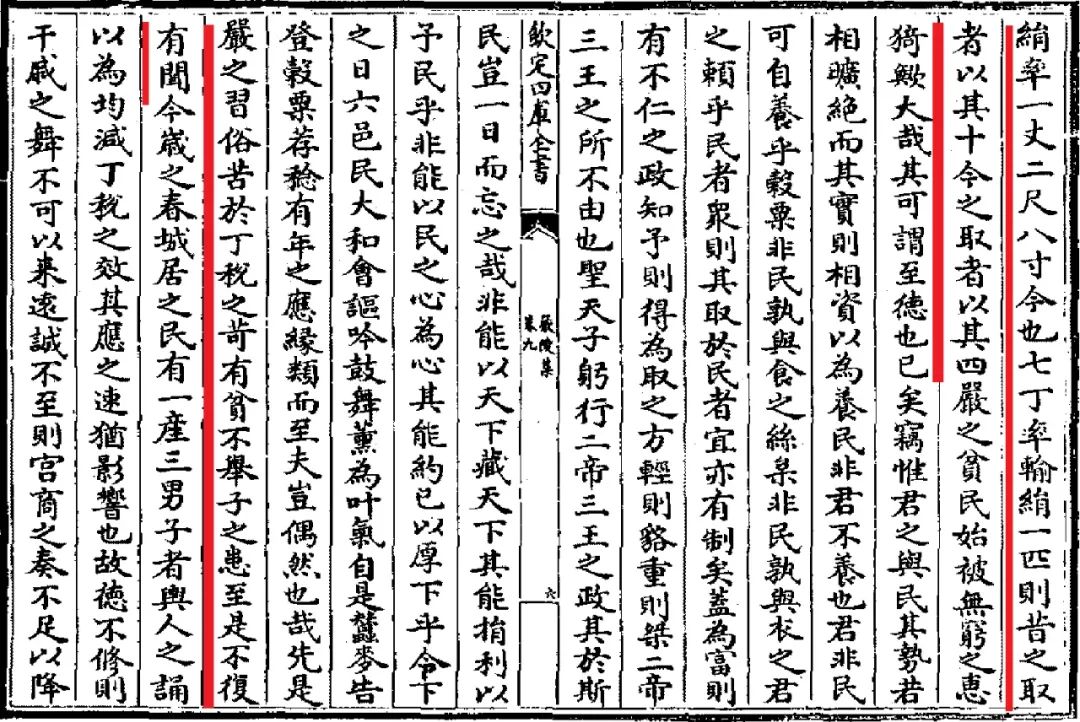 絹率一丈二尺八寸今也七丁率輸絹一匹則昔之取
者以其十今之取者以其四嚴之貧民始被無窮之惠
猗歟大哉其可謂至德也已矣竊惟君之與民其勢若
相曠絶而其實則相資以為養民非君不養也君非民
可自養乎穀粟非民孰與食之絲枲非民孰與衣之君
之賴乎民者衆則其取於民者宜亦有制矣蓋為富則
有不仁之政知予則得為取之方輕則貉重則桀二帝
三王之所不由也聖天子躬行二帝三王之政其於斯
欽定四庫全書
嚴陵集
卷九
六
民豈一日而忘之哉非能以天下藏天下其能捐利以
予民乎非能以民之心為心其能約已以厚下乎令下
之日六邑民大和會謳吟鼓舞薰為叶氣自是蠶麥告
登穀粟荐稔有年之應縁類而至夫豈偶然也哉先是
嚴之習俗苦於丁稅之苛有貧不舉子之患至是不復
有聞今嵗之春城居之民有一産三男子者輿人之誦
以為均減丁稅之效其應之速猶影響也故德不修則
干戚之舞不可以来逺誠不至則宫商之奏不足以降